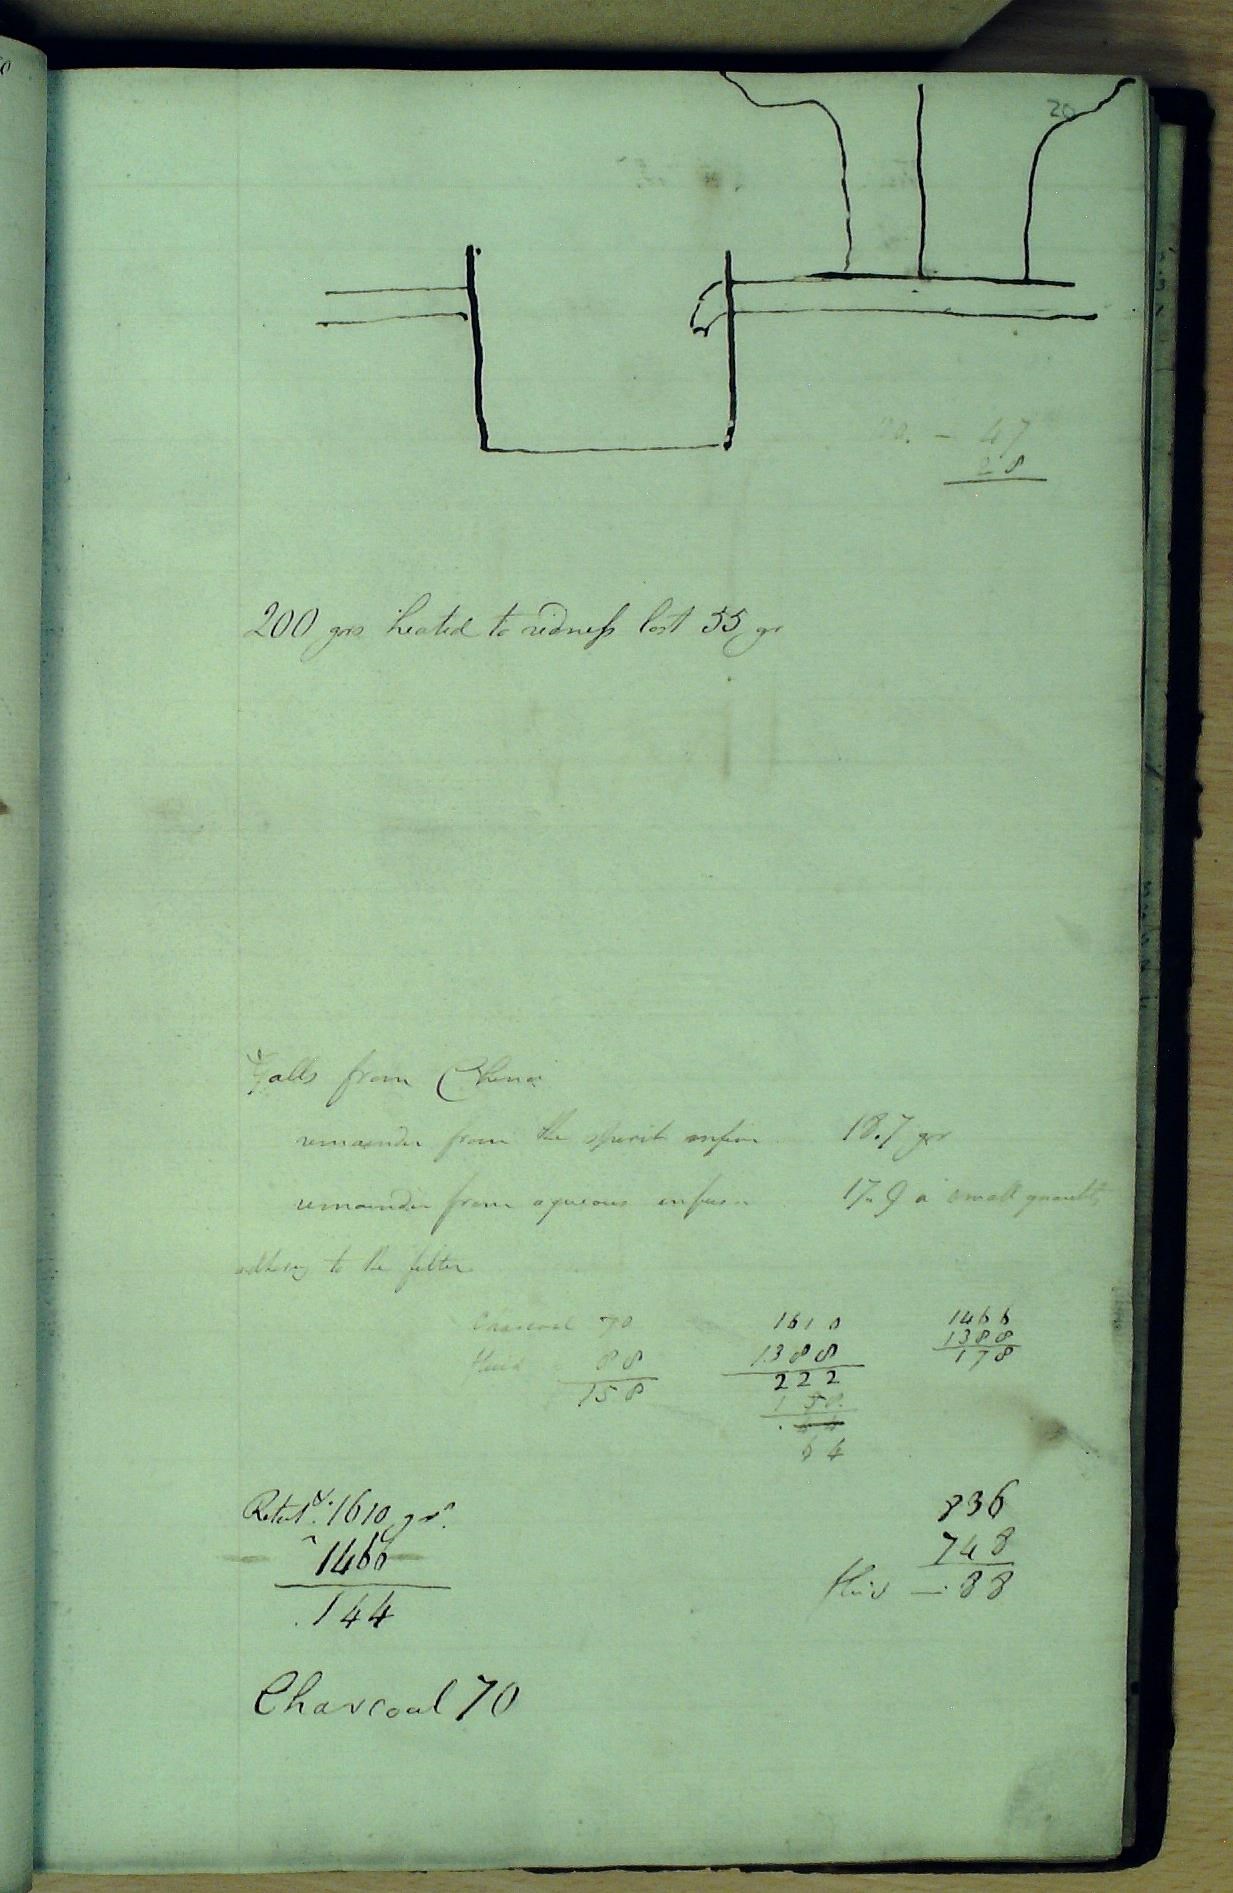 20
47
28
200 grs heated to redness lost 55 gr
Galls from China
remainder from the spirit infusn 18.7 grs
remainder from aqueous infusn 17.9 a small quantity
adhering to the filter
Charcoal 70 1610 1466
fluid 88 1388 1388
158 222 178
158
64
Retort & 1610 grs. 836
1466 748
144 fluid — 88
Charcoal 70